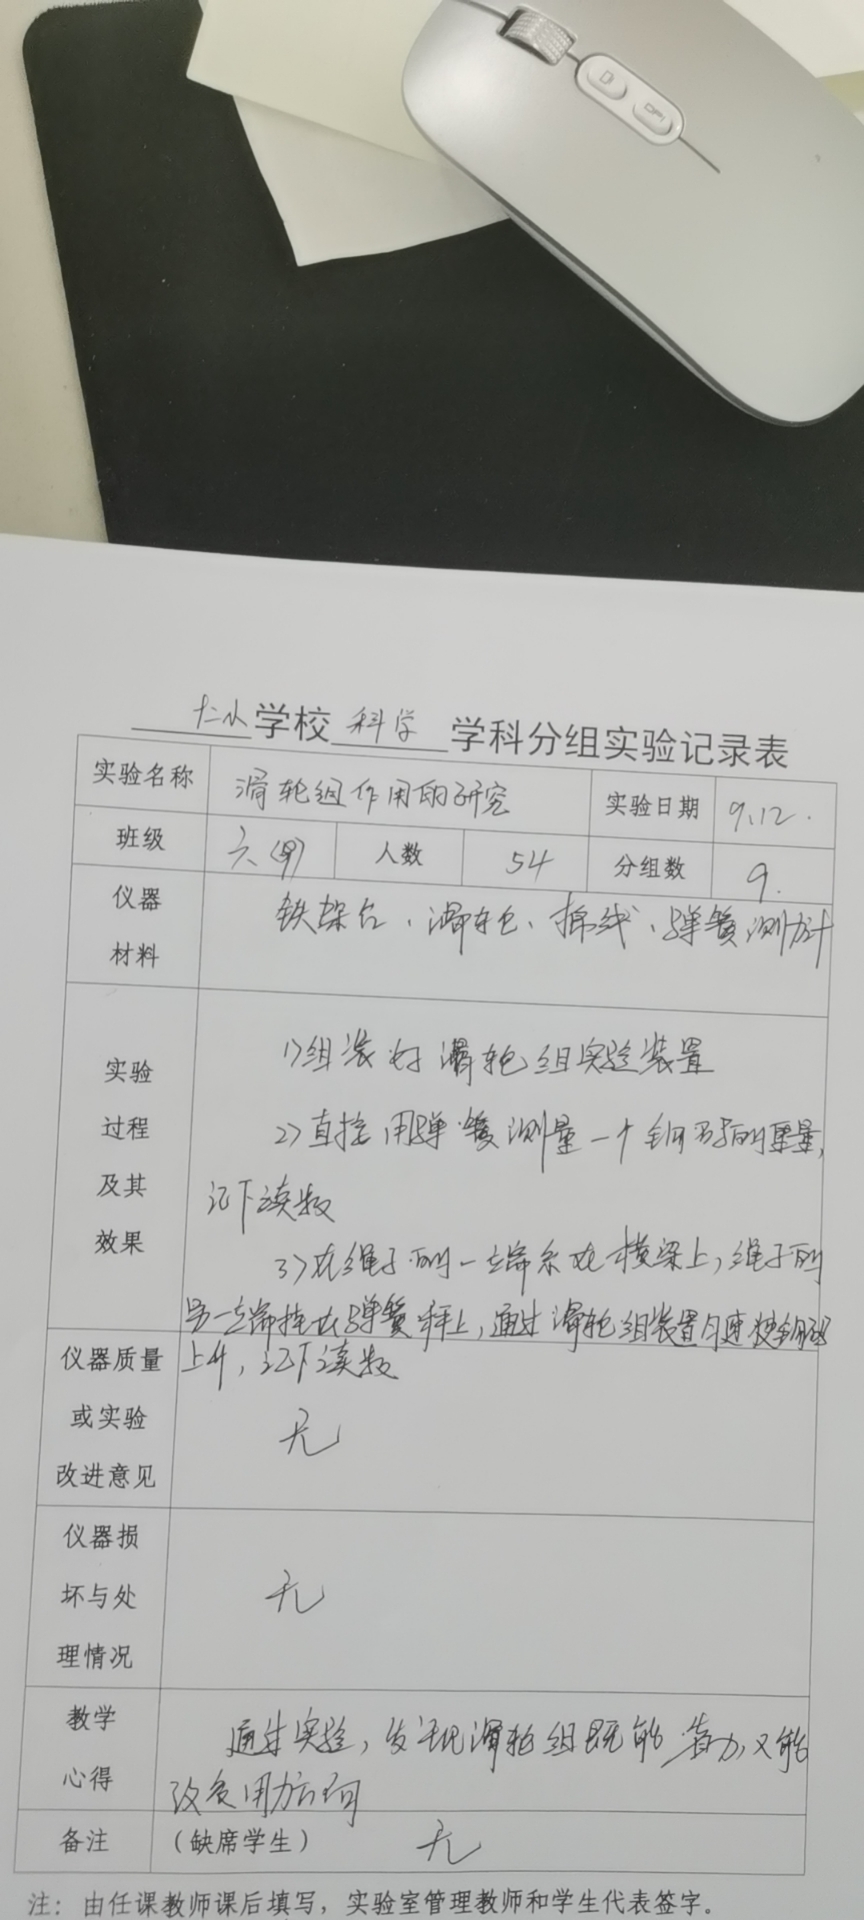 D
DPI
学校 科学 学科分组实验记录表
实验名称 滑轮组作用的研究 实验日期 9.12.
班级 六 人数 54 分组数 9.
仪器材料 铁架台、滑轮、棉线、弹簧测力计
实验过程及其效果
1)组装好滑轮组实验装置
2)直接用弹簧测量一个钩码的重量,
记下读数
3)在绳子的一端系在横梁上,绳子的
另一端挂在弹簧秤上,通过滑轮组装置匀速使钩码
上升,记下读数
仪器质量或实验改进意见 无
仪器损坏与处理情况 无
教学心得 通过实验,发现滑轮组既能省力,又能
改变用力方向
备注 (缺席学生) 无
注:由任课教师课后填写,实验室管理教师和学生代表签字。